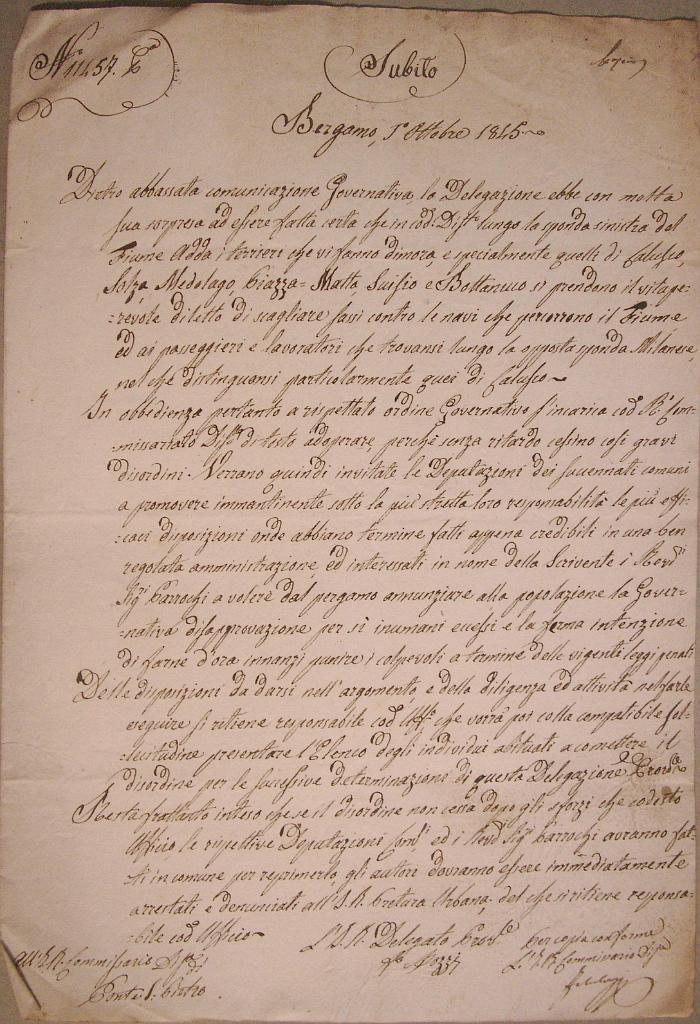 N.° 11457. P.
Subito
Bergamo, 1° Ottobre 1845
Dietro abbassata comunicazione Governativa, la Delegazione ebbe con molta
sua sorpresa ad essere fatta certa che in cod. Dist.° lungo la sponda sinistra del
Fiume Adda i terrieri che vi fanno dimora, e specialmente quelli di Calusco,
Solza, Medolago, Chiazza=Matta, Suisio e Bottanuco si prendono il vitupe=
=revole diletto di scagliare sassi contro le navi che percorrono il Fiume
ed ai passeggieri e lavoratori che trovansi lungo la opposta sponda Milanese,
nel che distinguonsi particolarmente quei di Calusco
In obbedienza pertanto a rispettato ordine Governativo s'incarica cod. R. Com=
=missariato Dist.e di tosto adoperare, perchè senza ritardo cessino così gravi
disordini. Verrano quindi invitate le Deputazioni dei succennati comuni
a promovere immantinente sotto la più stretta loro responsabilità le più effi=
=caci disposizioni onde abbiano termine fatti appena credibili in una ben
regolata amministrazione, ed interessati in nome della Scrivente i Rev.di
Sig.ri Parrochi a volere dal pergamo annunziare alla popolazione la Gover=
=nativa disapprovazione per sì inumani eccessi e la ferma intenzione
di farne d'ora innanzi punire i colpevoli a termine delle vigenti leggi penali
Delle disposizioni da darsi nell'argomento e della diligenza ed attività nel farle
eseguire si ritiene responsabile cod. Uff.° che vorrà poi colla compatibile sol=
=lecitudine presentare l'Elenco degli individui abituati a comettere il
disordine per le successive determinazioni di questa Delegazione Prov.le
Resta frattanto inteso che se il disordine non cessa dopo gli sforzi che codesto
Ufficio le rispettive Deputazioni Com.li ed i Rev.di Sig.ri Parrochi avranno fat=
=ti in comune per reprimerlo, gli autori dovranno essere immediatamente
arrestati e denunciati all'I. R. Pretura Urbana, del che si ritiene responsa=
=bile cod. Ufficio
L'I. R. Delegato Prov.le
Per copia conforme
L'I. R. Commissario Dist.e
All'I. R. Commissario Dist.e
Ponte S. Pietro